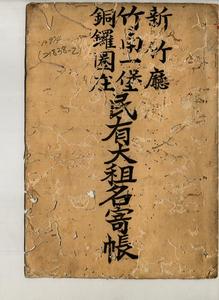 新竹廳
竹南一堡
銅鑼圈庄
民有大租名寄帳
(21838-2)